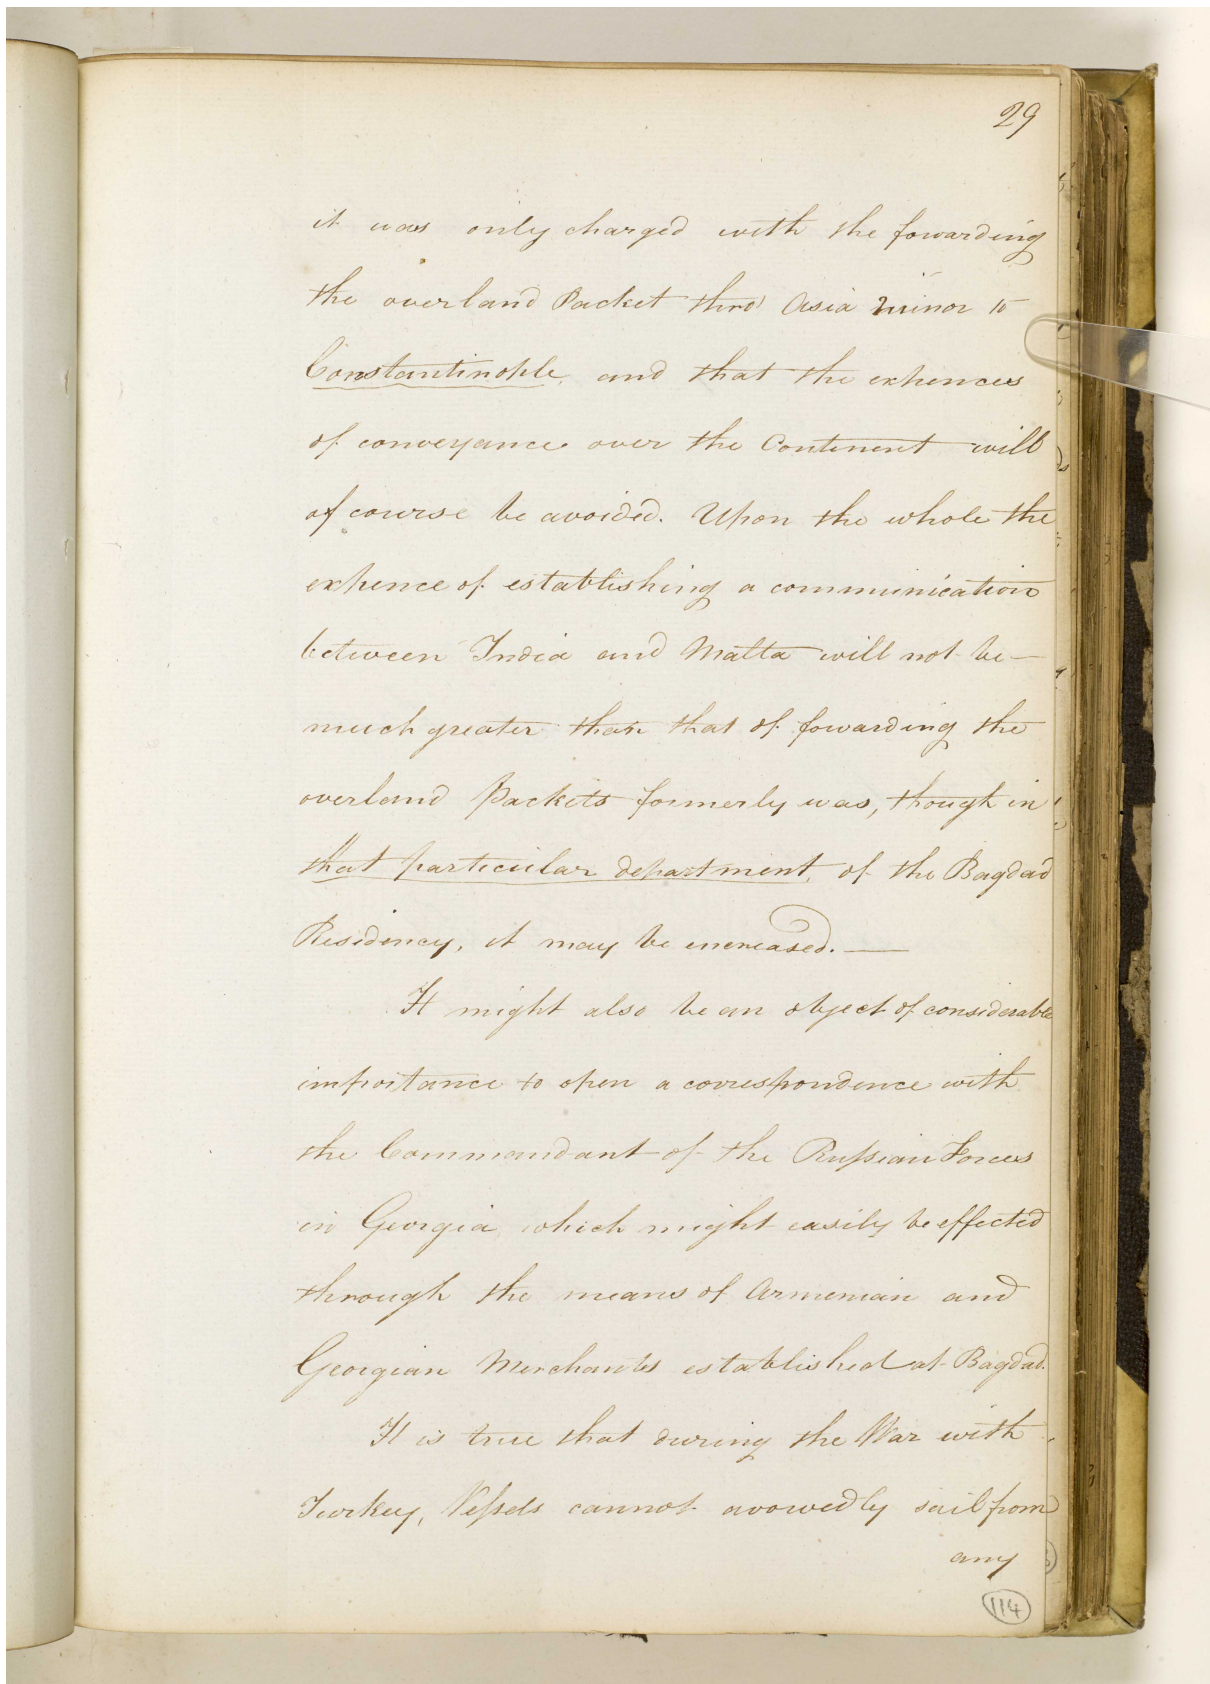 29
it was only charged with the fowarding
the overland Packet thro' Asia Minor to
Constantinople, and that the expences
of conveyance over the Continent will
of course be avoided. Upon the whole the
expence of establishing a communication
between India and Malta will not be —
much greater than that of fowarding the
overland Packets formerly was, though in
that particular department, of the Bagdad
Residency, it may be encreased. —
It might also be an object of considerable
importance to open a correspondence with
the Commandant of the Russian Forces
in Georgia, which might easily be effected
through the means of Armenian and
Georgian Merchants established at Bagdad.
It is true that during the War with
Turkey, Vessels cannot avowedly sail from
any
114